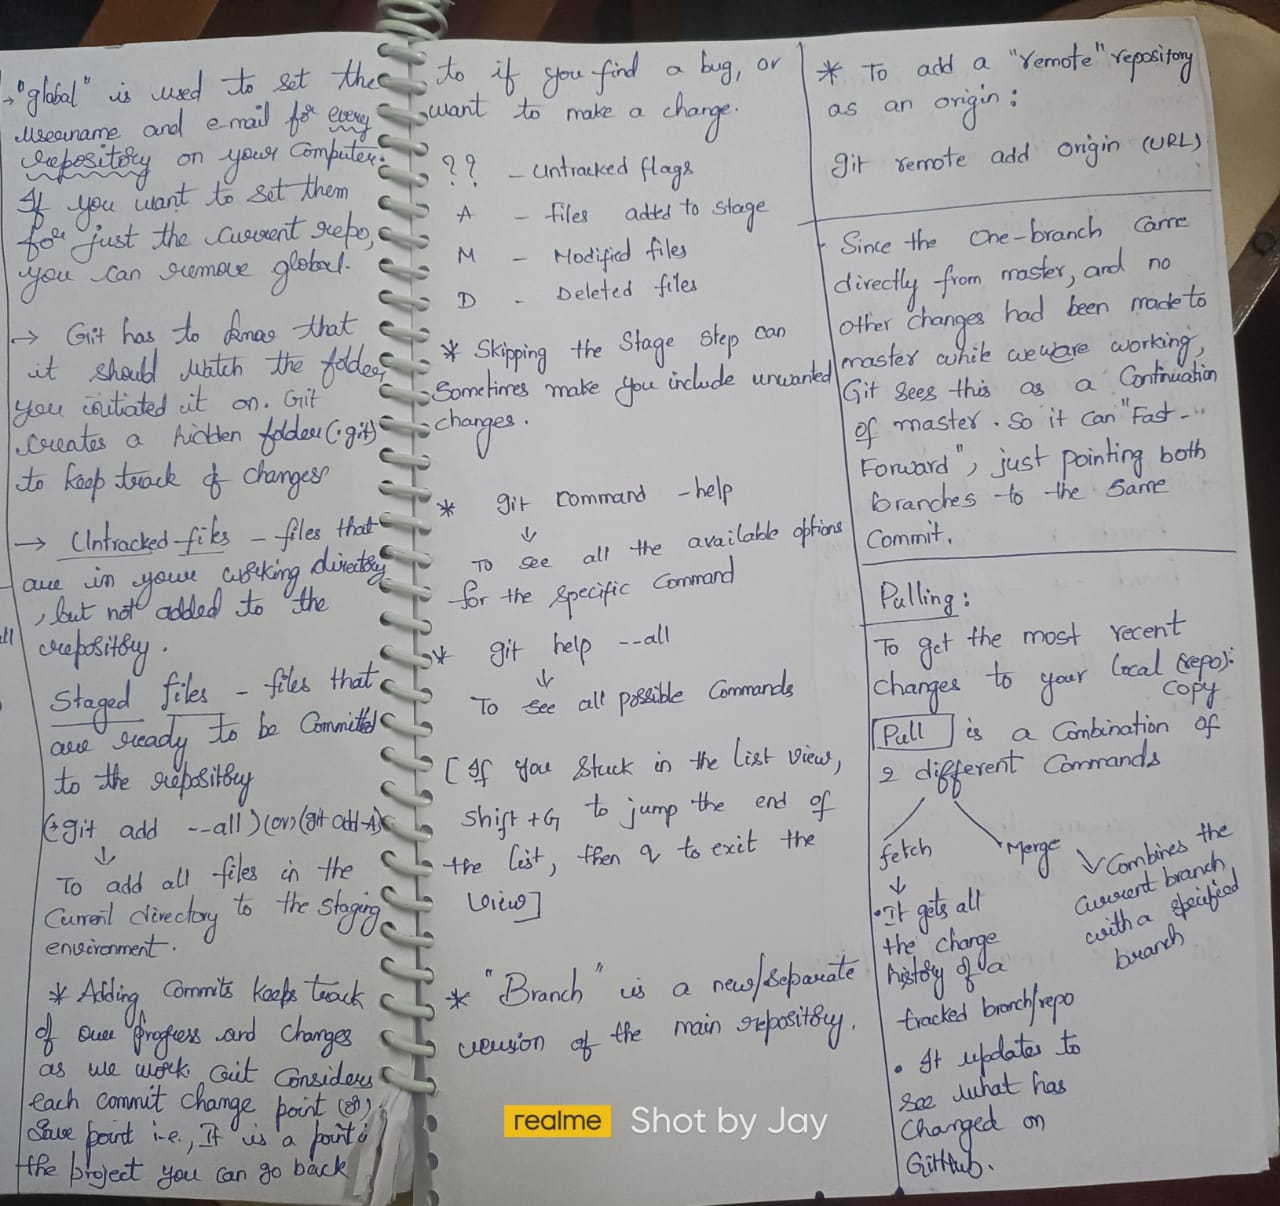 → "global" is used to set the
username and e-mail for every
repository on your computer.
If you want to set them
for just the current repo,
you can remove global.
→ Git has to know that
it should watch the folder
you initiated it on. Git
creates a hidden folder (.git)
to keep track of changes
→ Untracked files - files that
are in your working directory
, but not added to the
repository.
Staged files - files that
are ready to be Committed
to the repository
git add --all) (or) (git add -A)
↓
To add all files in the
Current directory to the staging
environment.
* Adding Commits keeps track
of our progress and changes
as we work. Git Considers
each commit change point (or)
Save point i.e., It is a point
the project you can go back
to if you find a bug, or
want to make a change.
?? - Untracked flags
A - files added to stage
M - Modified files
D - Deleted files
* Skipping the Stage Step can
Sometimes make you include unwanted
changes.
* git command -help
↓
To see all the available options
for the specific Command
* git help --all
↓
To see all possible Commands
[ If you stuck in the list view,
shift + G to jump the end of
the list, then q to exit the
view]
* "Branch" is a new/separate
version of the main repository.
* To add a "remote" repository
as an origin:
git remote add origin (URL)
Since the one-branch came
directly from master, and no
other changes had been made to
master while we were working,
Git sees this as a Continuation
of master. So it can "Fast-
Forward", just pointing both
branches to the same
Commit.
Pulling:
To get the most recent
changes to your local (repo):
copy
Pull is a Combination of
2 different Commands
fetch
↓
• It gets all
the change
history of a
tracked branch/repo
• It updates to
see what has
changed on
GitHub.
Merge
↓ Combines the
current branch
with a specified
branch
realme Shot by Jay